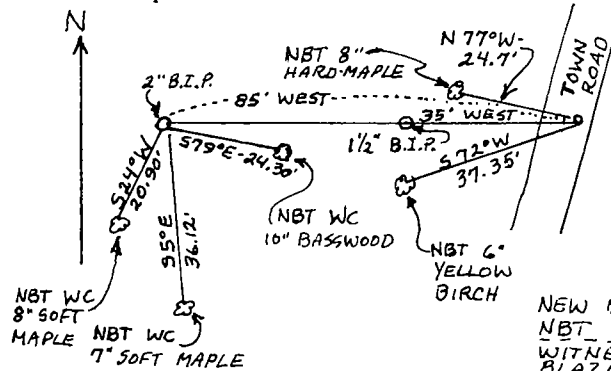 N
2" B.I.P.
NBT 8"
HARD-MAPLE
N 77°W-
24.7'
TOWN
ROAD
85' WEST
35' WEST
1½" B.I.P.
S79°E-24.30'
S72°W
37.35'
S24°W
20.90'
S5°E
36.12'
NBT WC
10" BASSWOOD
NBT 6"
YELLOW
BIRCH
NBT WC
8" SOFT
MAPLE
NBT WC
7" SOFT MAPLE
NEW
NBT
WITNE
BLAZ